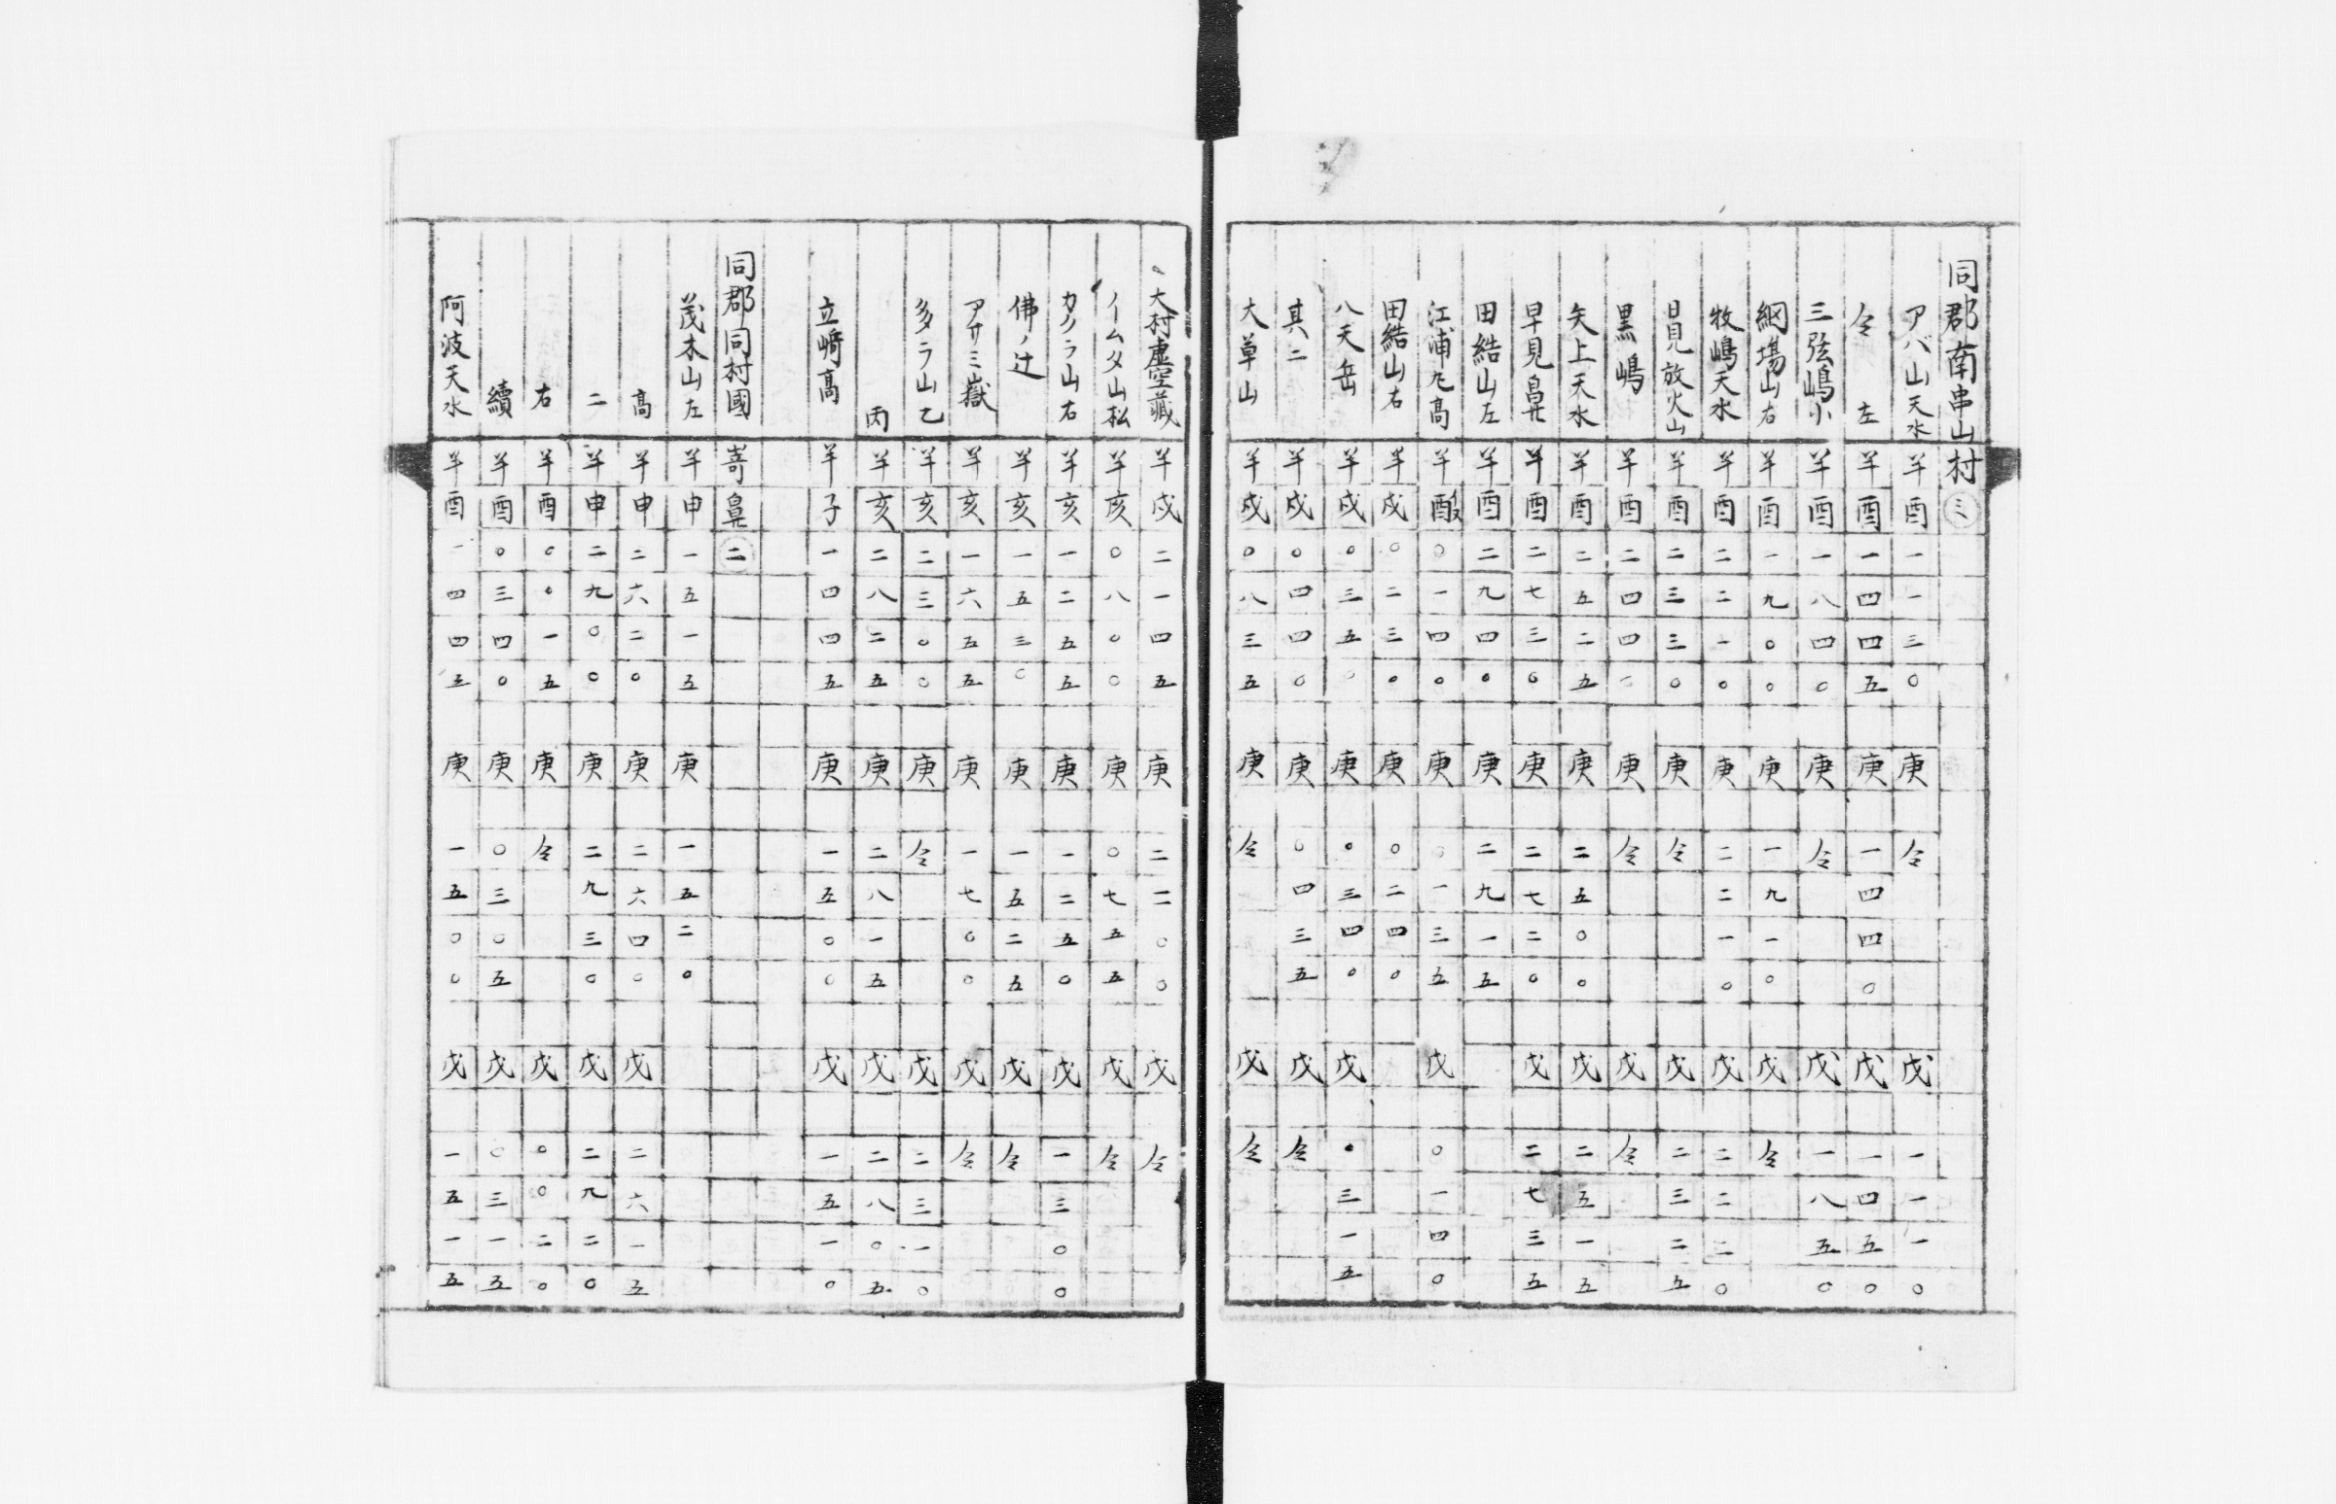 同郡南串山村㊂
アバ山天水 羊酉一一三〇 庚仝 戊一一一〇
仝 左 羊酉一四四五 庚一四四〇 戊一四五〇
三弦嶋小 羊酉一八四〇 庚仝 戊一八五〇
網場山右 羊酉一九〇〇 庚一九一〇 戊仝
牧嶋天水 羊酉二二一〇 庚二二一〇 戊二二二〇
日見放火山 羊酉二三三〇 庚仝 戊二三二五
黒嶋 羊酉二四四〇 庚仝 戊仝
矢上天水 羊酉二五二五 庚二五〇〇 戊二五一五
早見鼻 羊酉二七三〇 庚二七二〇 戊二七三五
田結山左 羊酉二九四〇 庚二九一五
江浦九高 羊酉〇一四〇 庚〇一三五 戊〇一四〇
田結山右 羊戌〇二三〇 庚〇二四〇
八天岳 羊戌〇三五〇 庚〇三四〇 戊〇三一五
其二 羊戌〇四四〇 庚〇四三五 戊仝
大草山 羊戌〇八三五 庚仝 戊仝
大村虚空蔵 羊戌二一四五 庚二一〇〇 戊仝
イームタ山松 羊亥〇八〇〇 庚〇七五五 戊仝
カノラ山右 羊亥一二五五 庚一二五〇 戊一三〇〇
佛ノ辻 羊亥一五三〇 庚一五二五 戊仝
アサミ嶽 羊亥一六五五 庚一七〇〇 戊仝
多タラ山乙 羊亥二三〇〇 庚仝 戊二三一〇
丙 羊亥二八二五 庚二八一五 戊二八〇五
立﨑高 羊子一四四五 庚一五〇〇 戊一五一〇
同郡同村國嵜鼻㊁
茂木山左 羊申一五一五 庚一五二〇
高 羊申二六二〇 庚二六四〇 戊二六一五
二 羊申二九〇〇 庚二九三〇 戊二九二〇
右 羊酉〇〇一五 庚仝 戊〇〇二〇
續 羊酉〇三四〇 庚〇三〇五 戊〇三一五
阿波天水 羊酉一四四五 庚一五〇〇 戊一五一五